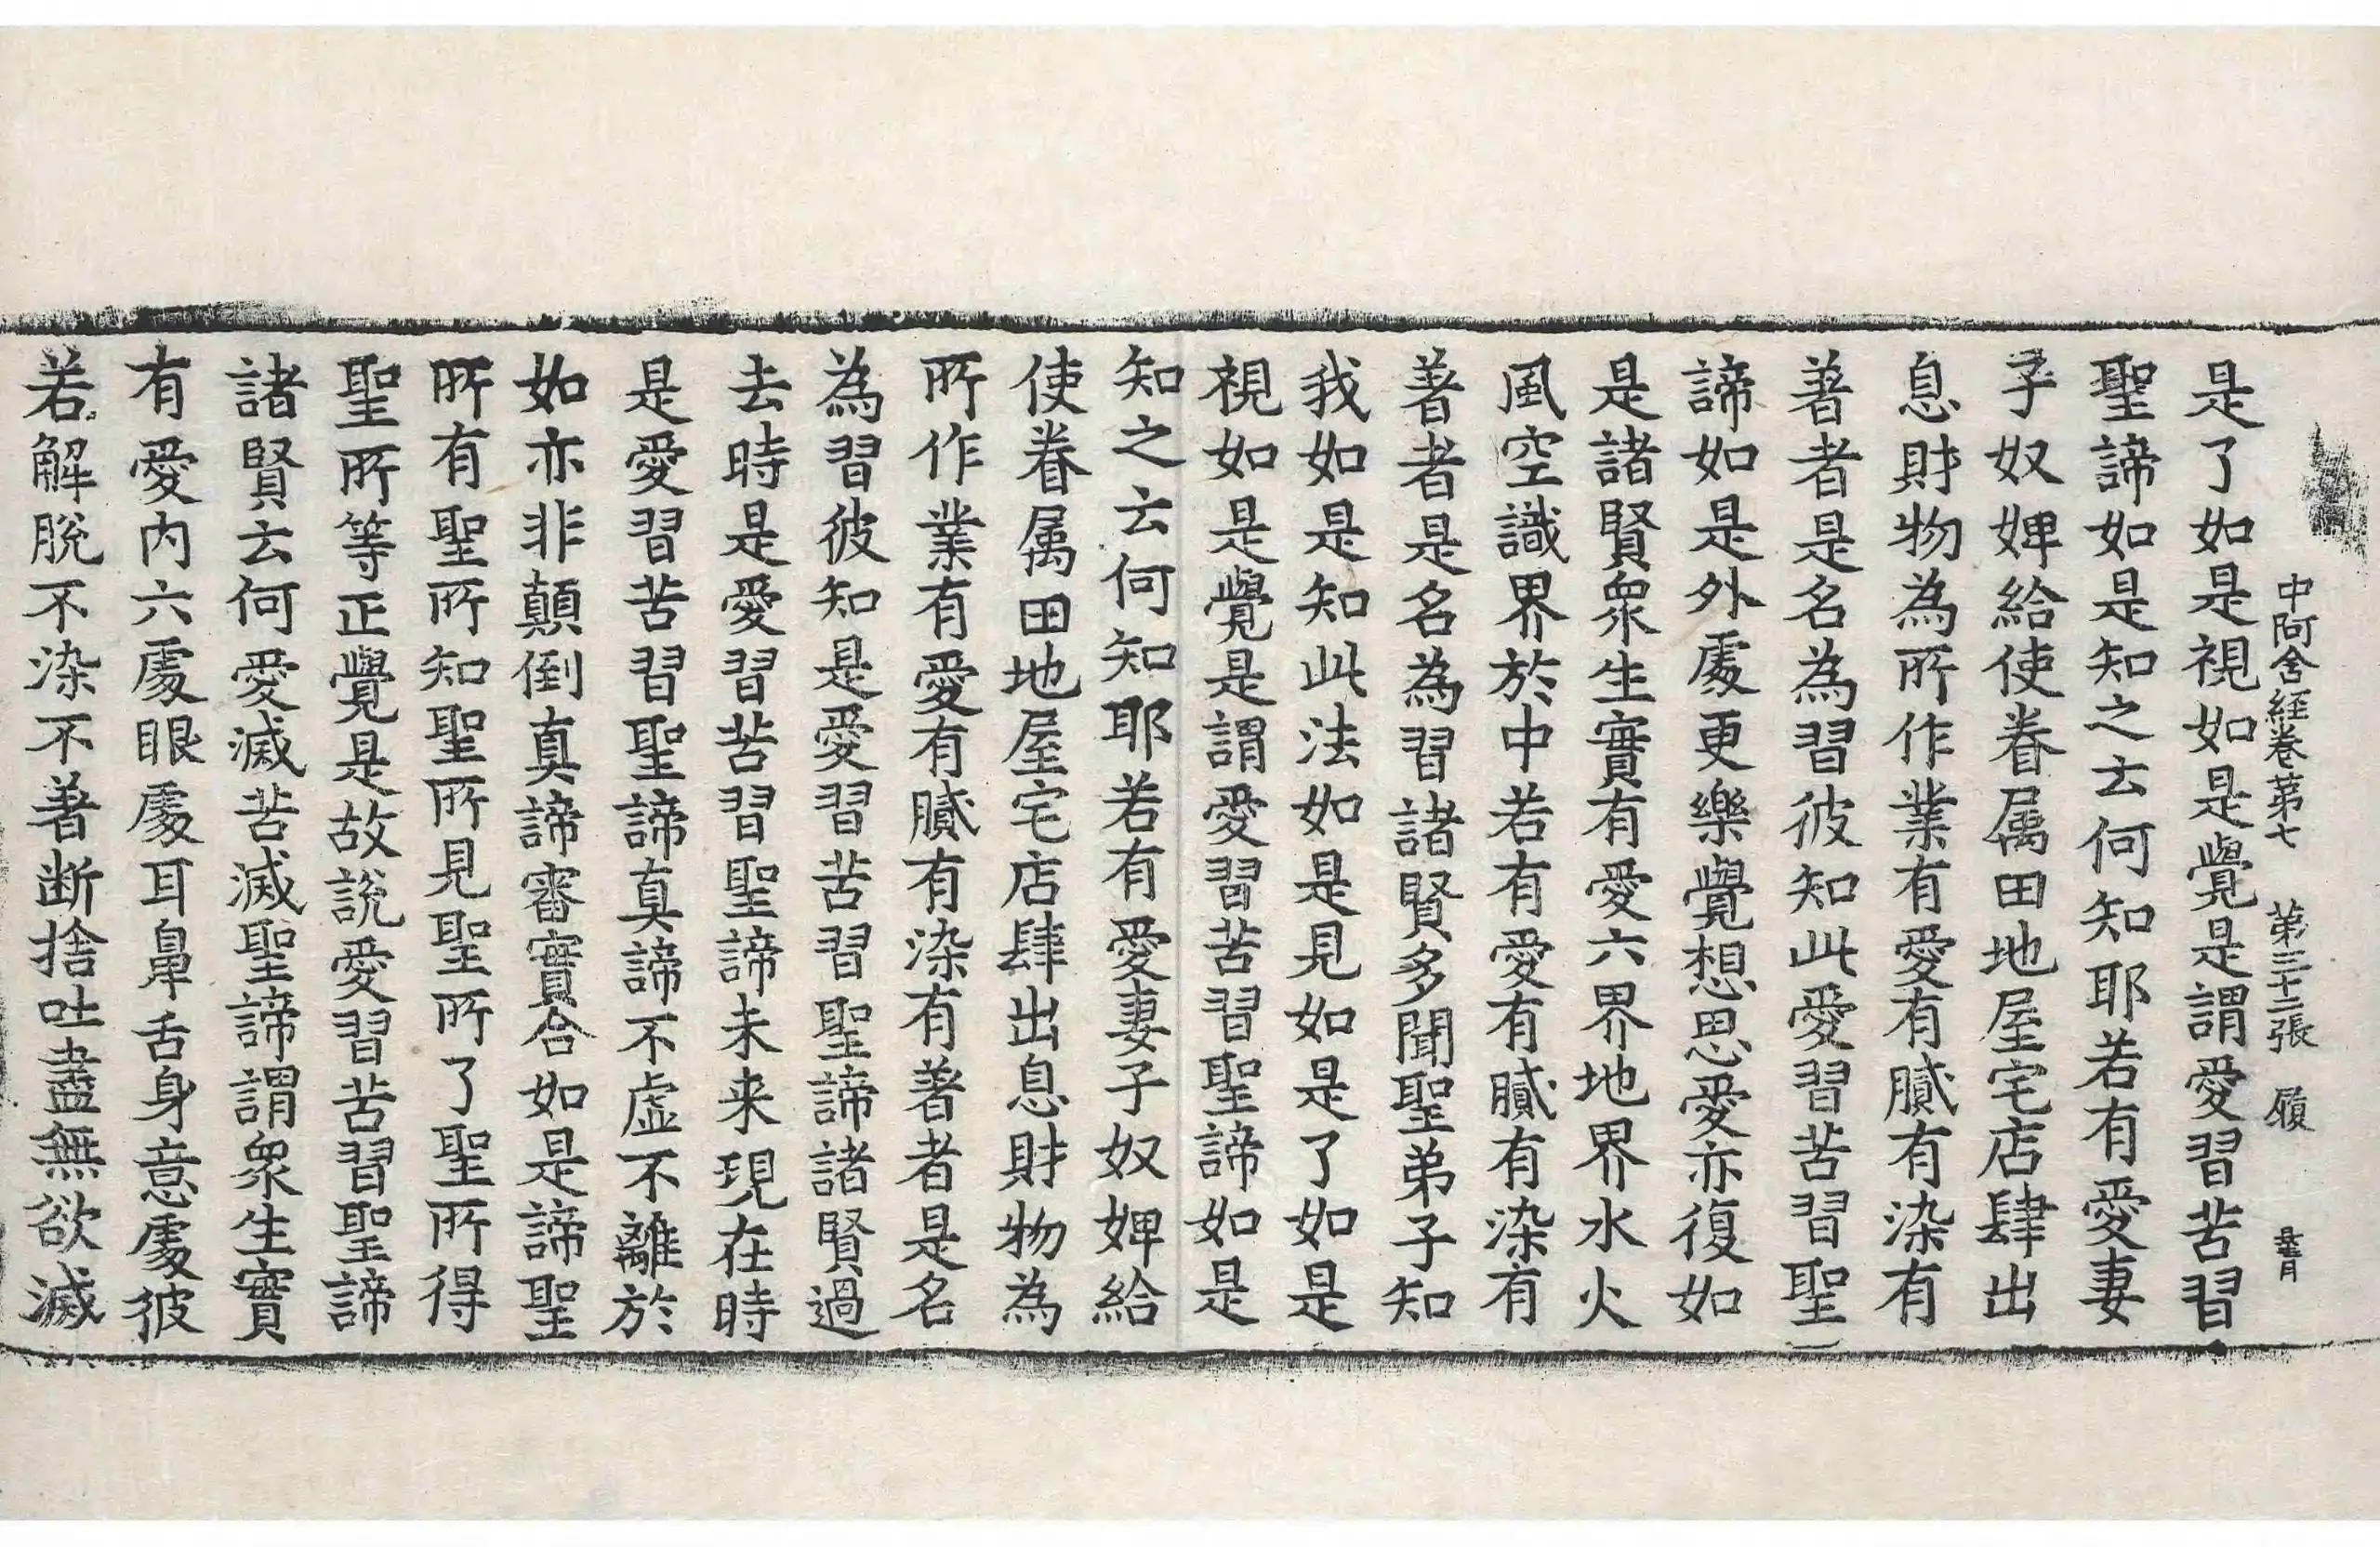 中阿含経卷苐七 第三十二張 履
是了如是視如是覺是謂愛習苦習
聖諦如是知之云何知耶若有愛妻
子奴婢給使眷属田地屋宅店肆出
息財物為所作業有愛有膩有染有
著者是名為習彼知此愛習苦習聖
諦如是外處更樂覺想思愛亦復如
是諸賢衆生實有愛六界地界水火
風空識界於中若有愛有膩有染有
著者是名為習諸賢多聞聖弟子知
我如是知此法如是見如是了如是
視如是覺是謂愛習苦習聖諦如是
知之云何知耶若有愛妻子奴婢給
使眷属田地屋宅店肆出息財物為
所作業有愛有膩有染有著者是名
為習彼知是愛習苦習聖諦諸賢過
去時是愛習苦習聖諦未来現在時
是愛習苦習聖諦真諦不虛不離於
如亦非顛倒真諦審實合如是諦聖
所有聖所知聖所見聖所了聖所得
聖所等正覺是故說愛習苦習聖諦
諸賢云何愛滅苦滅聖諦謂衆生實
有愛內六處眼處耳鼻舌身意處彼
若解脫不染不著断捨吐盡無欲滅